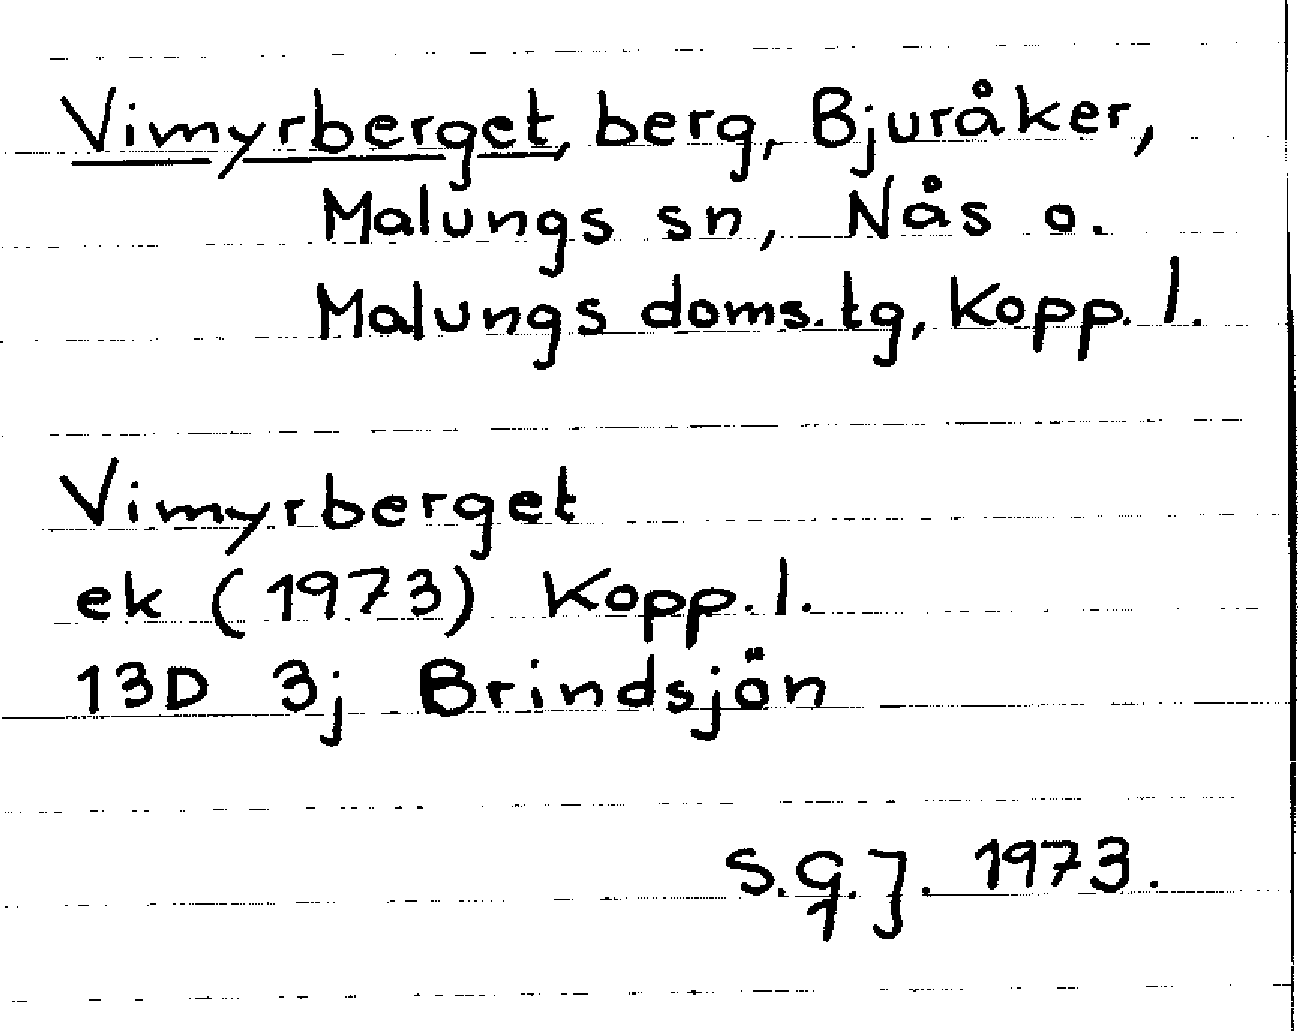 Vimyrberget, berg, Bjuråker,
Malungs sn, Nås o.
Malungs doms.tg, Kopp. l.
Vimyrberget
ek (1973) Kopp. l.
13D 3j Brindsjön
S.G.J. 1973.